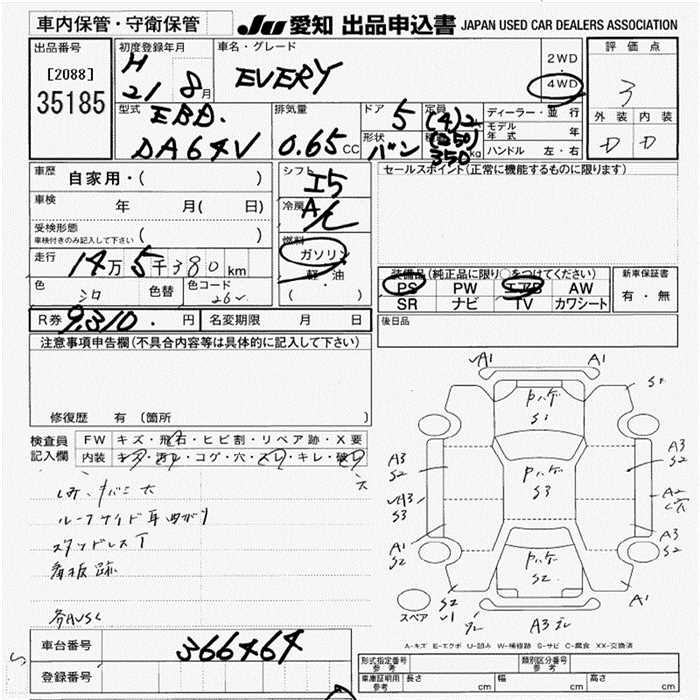 車内保管・守衛保管
JU 愛知 出品申込書 JAPAN USED CAR DEALERS ASSOCIATION
出品番号
[2088]
35185
初度登録年月
H 21 8月
車名・グレード
EVERY
2WD
・
4WD
評価点
3
外装 内装
D D
型式
EBD.
DA64V
排気量
0.65CC
ドア 5
形状
バン
定員
(4)2
(250)
350kg
ディーラー・並行
モデル年式 年
ハンドル 左・右
車歴
自家用・( )
車検 年 月( 日)
受検形態
車検付きのみ記入して下さい ( )
走行
14万5千380km
色 シロ 色替 色コード 26
シフト
I5
冷房
A/C
燃料
ガソリン
軽・油
( )
セールスポイント(正常に機能するものに限ります)
装備品(純正品に限り○をつけてください)
PS PW エアB AW
SR ナビ TV カワシート
新車保証書
有・無
R券 9,310.円 名変期限 月 日
後日品
注意事項申告欄(不具合内容等は具体的に記入して下さい)
修復歴 有(箇所
検査員
記入欄
FW キズ・飛石・ヒビ割・リペア跡・X要
内装 キズ・汚レ・コゲ・穴・スレ・キレ・破レ
大
ルーフサイド耳曲がり
スタッドレスT
看板跡
各AUSC
A1 A1
S2
Pハゲ
S1
A3
S2
A3
S2
Pハゲ
S3
A3
S3
A2
C穴
A1
S2
A3
S2
Pハゲ
S2
S2
A1
スペア
A3
A-キズ E-エクボ U-凹み W-補修跡 S-サビ C-腐食 XX-交換済
車台番号 366464
登録番号
型式指定番号
参考
類別区分番号
参考
車庫証明用
参考
長さ cm 幅 cm 高さ cm